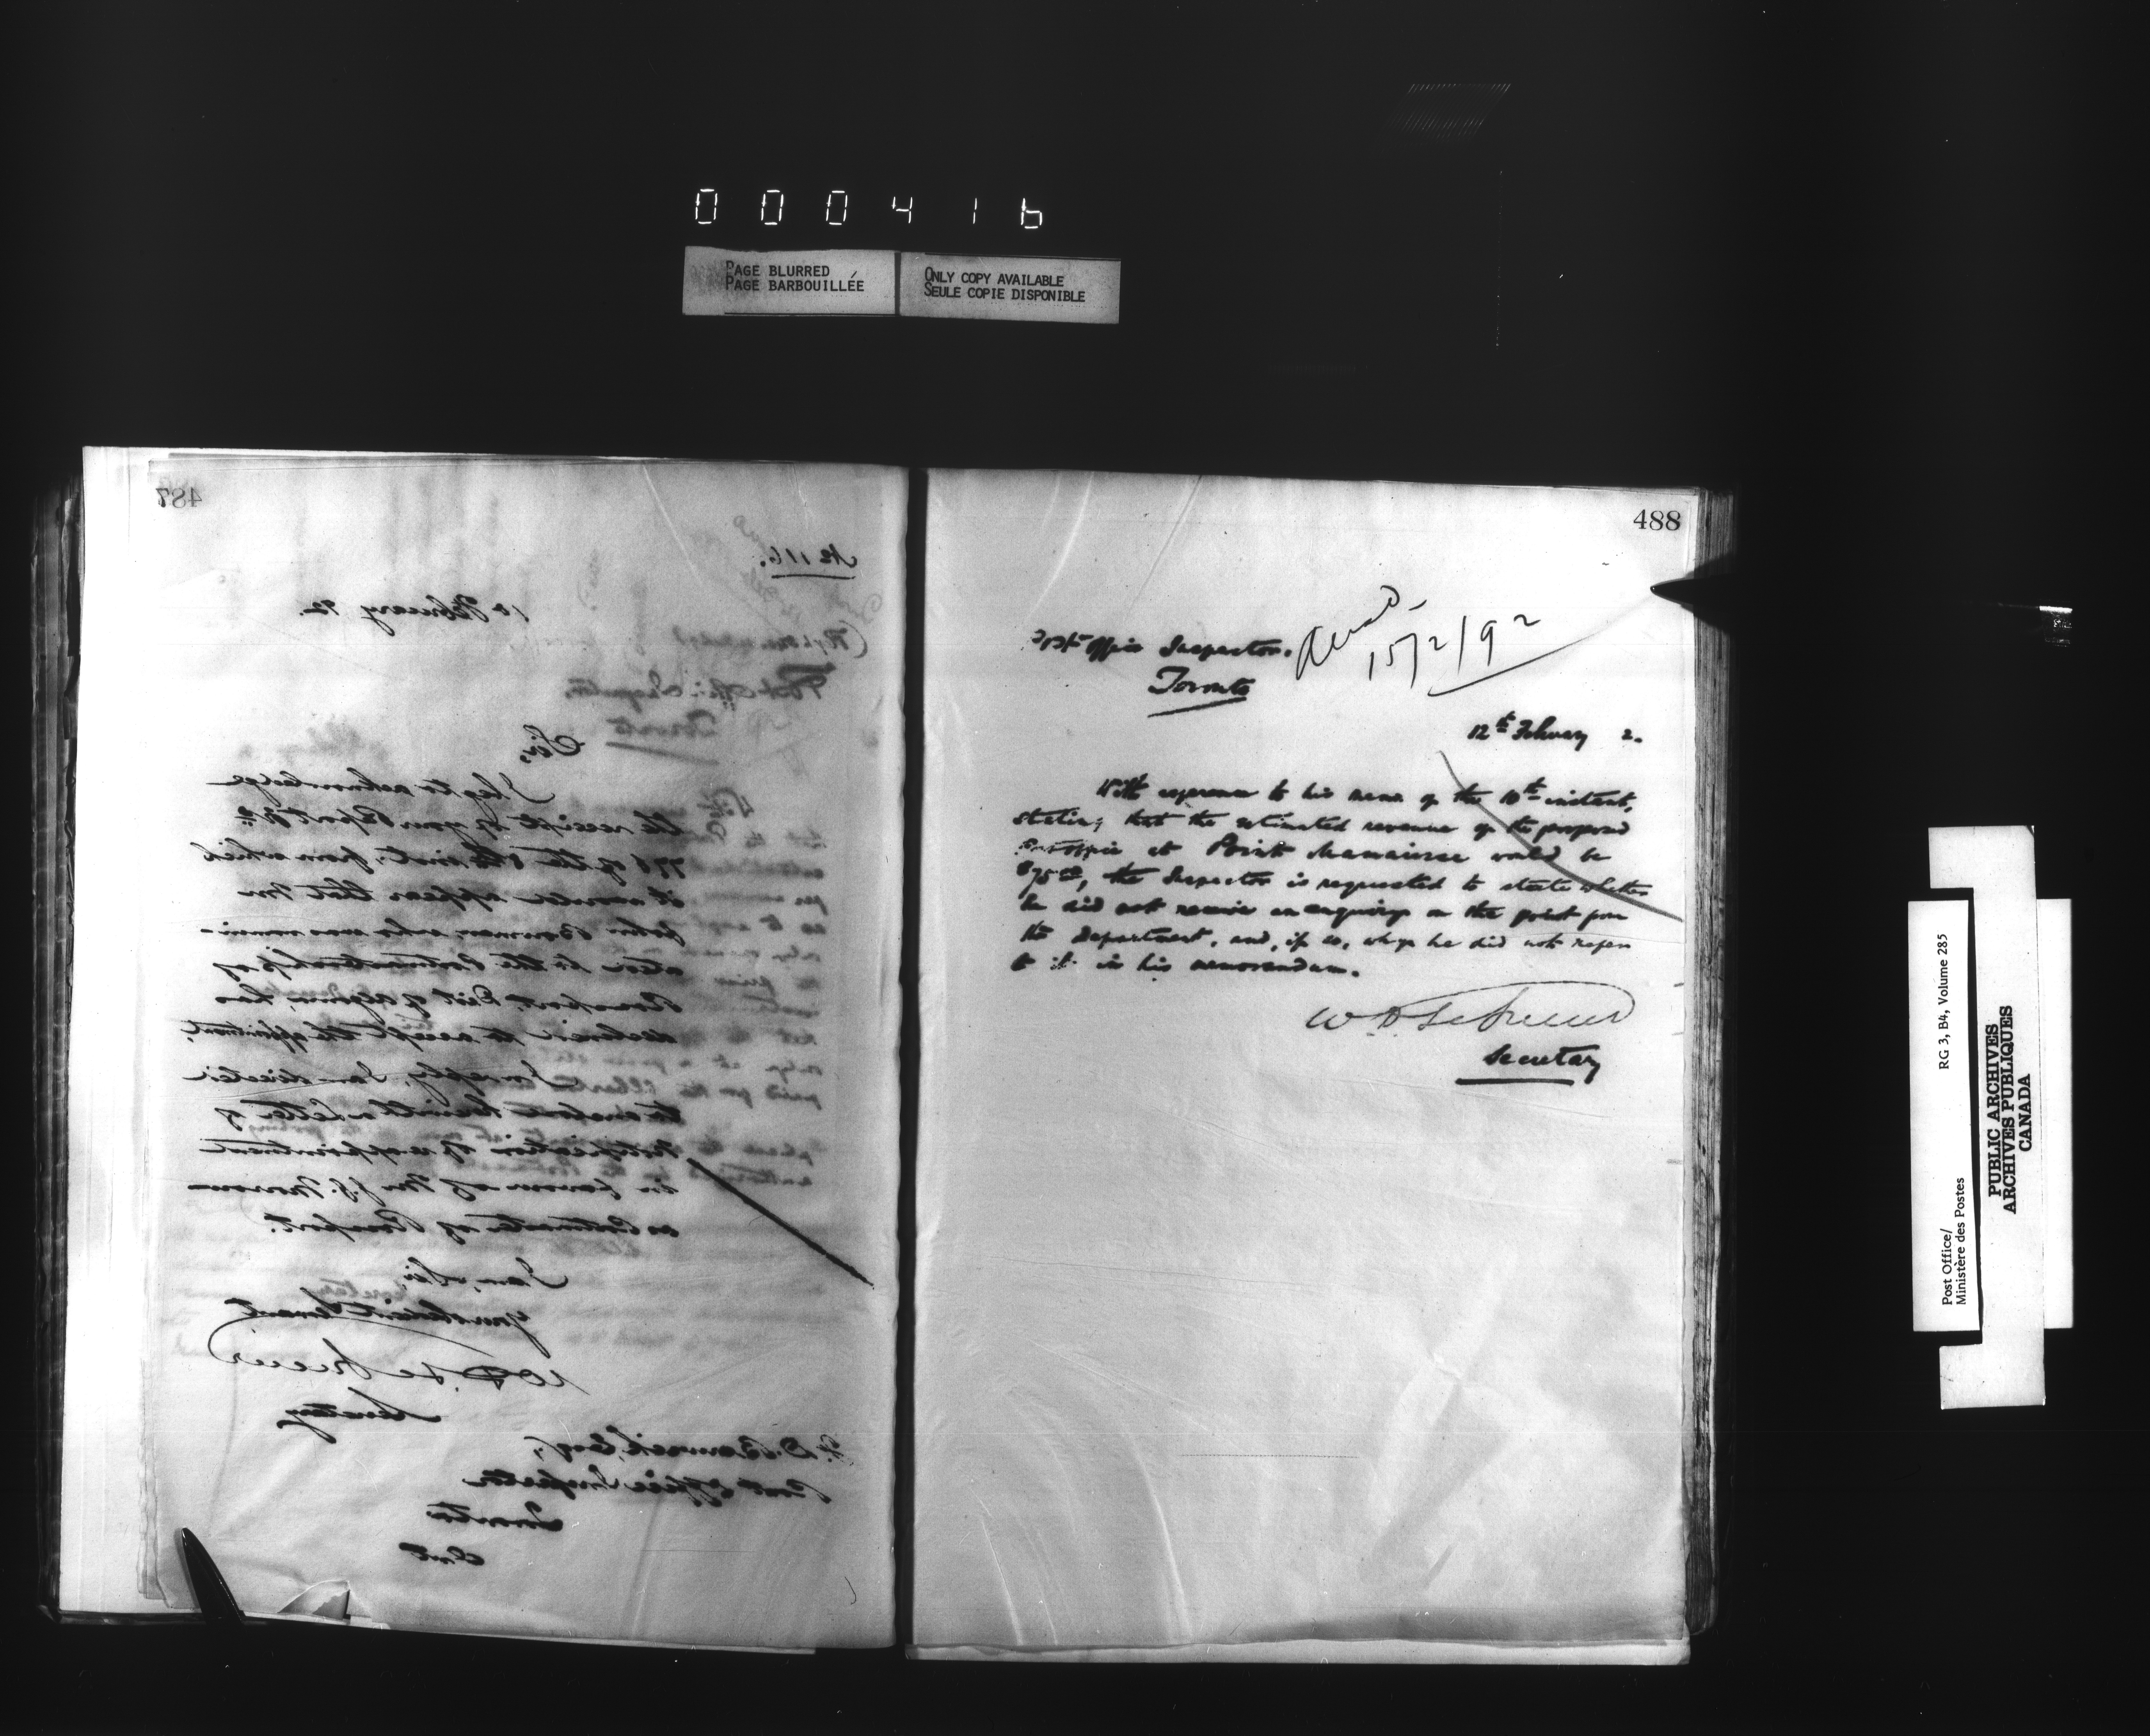 000416
PAGE BLURRED
PAGE BARBOUILLÉE
ONLY COPY AVAILABLE
SEULE COPIE DISPONIBLE
487
No 116.
10 February 92.
Sir,
I beg to acknowledge
the receipt of your Report No.
776 of the inst., from which
it would appear that Mr
John Bowman, who was nomin-
ated to the Postmastership of
Rossport, Dist of Algoma, has
declined to accept the appointment.
In reply, I am directed
to enclose herewith a Letter of
Notification of appointment
in favour of Mr J.G.
as Postmaster of Rossport.
I am, Sir,
Your obedient Servant
W D LeSueur
Secretary
D. Barwick, Esq,
Post Office Inspector
Toronto
Ont
488
Post Office Inspector.
Toronto
15/2/92
12th February 2.
With reference to his memo of the 10th instant,
stating that the estimated revenue of the proposed
Post Office at Point Mamainse would be
$75.00, the Inspector is requested to state whether
he did not receive an enquiry on the point from
the Department, and, if so, why he did not refer
to it in his memorandum.
W D LeSueur
Secretary
Post Office/
Ministère des Postes
RG 3, B4, Volume 285
PUBLIC ARCHIVES
ARCHIVES PUBLIQUES
CANADA